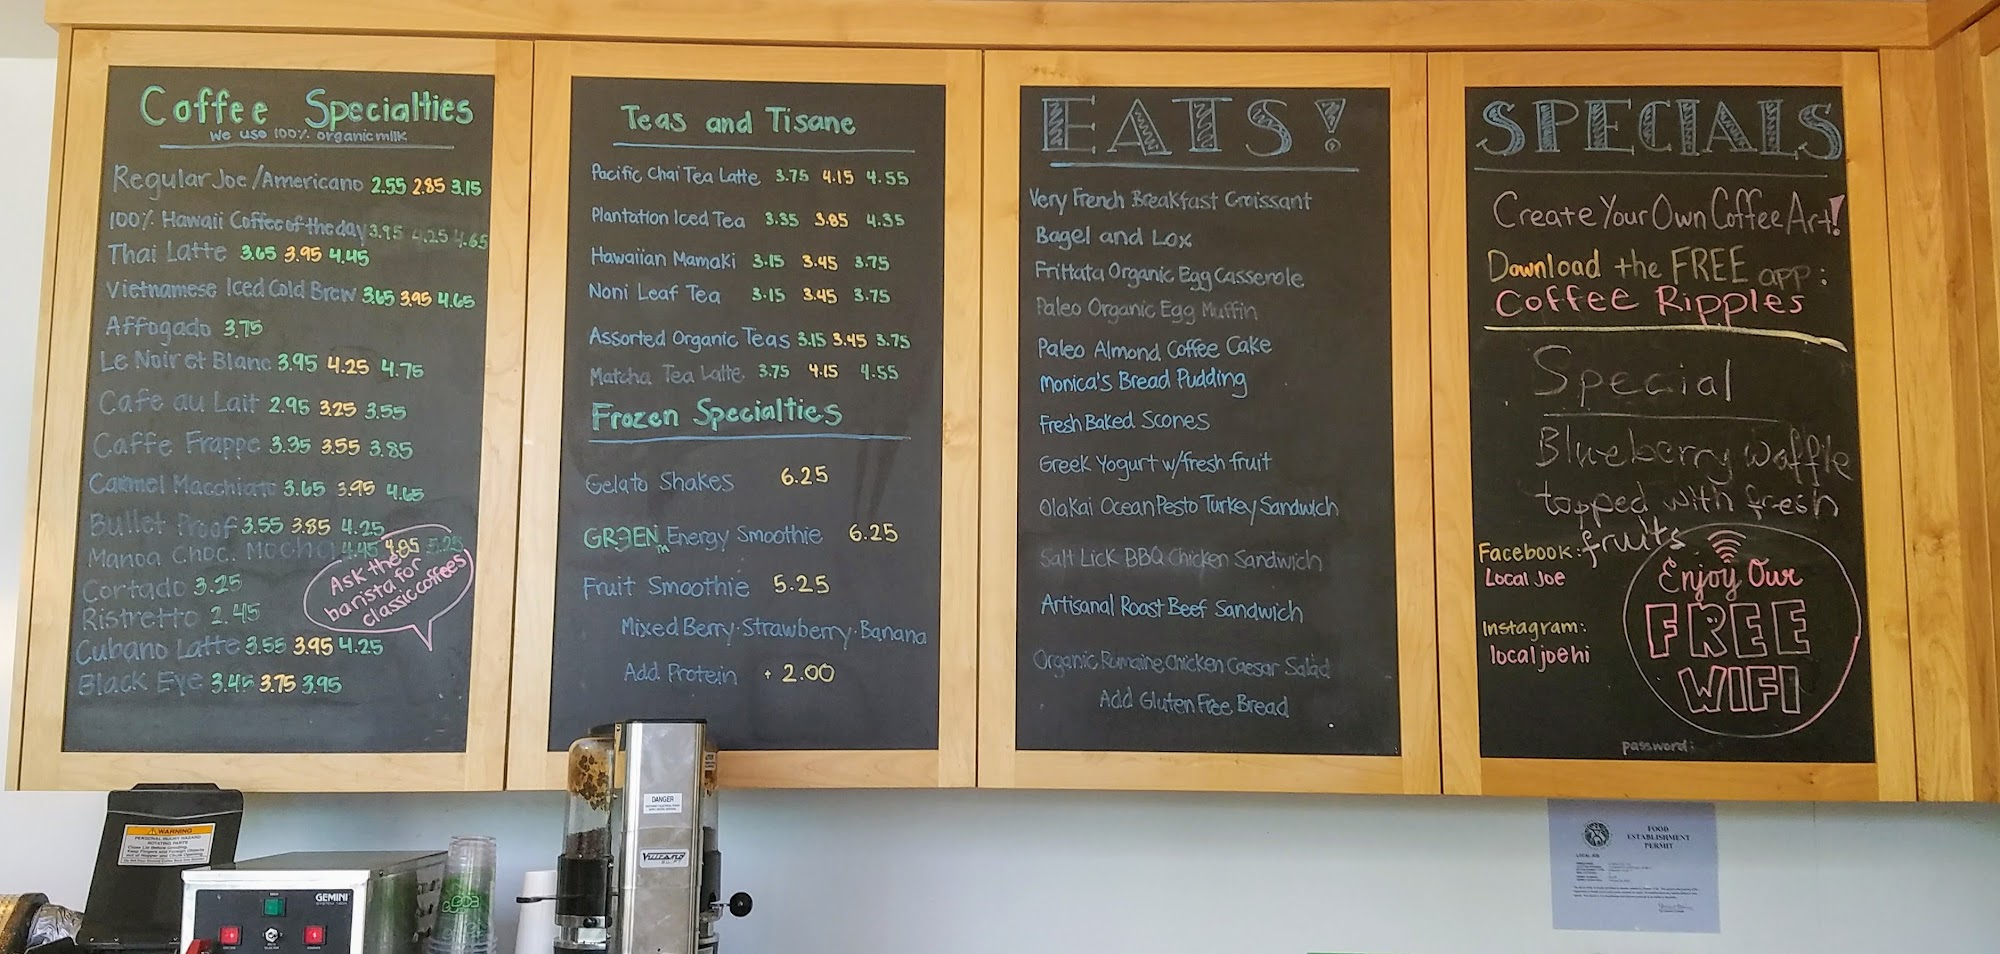 Coffee Specialties
we use 100% organic milk
Regular Joe/Americano 2.55 2.85 3.15
100% Hawaii Coffee of the day 3.95 4.25 4.65
Thai Latte 3.65 3.95 4.45
Vietnamese Iced Cold Brew 3.65 3.95 4.65
Affogado 3.75
Le Noir et Blanc 3.95 4.25 4.75
Cafe au Lait 2.95 3.25 3.55
Caffe Frappe 3.35 3.55 3.85
Carmel Macchiato 3.65 3.95 4.65
Bullet Proof 3.55 3.85 4.25
Manoa Choc. Mocha 4.45 4.85 5.25
Cortado 3.25
Ristretto 2.45
Cubano Latte 3.55 3.95 4.25
Black Eye 3.45 3.75 3.95
Ask the
barista for
classic coffees
Teas and Tisane
Pacific Chai Tea Latte 3.75 4.15 4.55
Plantation Iced Tea 3.35 3.85 4.35
Hawaiian Mamaki 3.15 3.45 3.75
Noni Leaf Tea 3.15 3.45 3.75
Assorted Organic Teas 3.15 3.45 3.75
Matcha Tea Latte 3.75 4.15 4.55
Frozen Specialties
Gelato Shakes 6.25
GR3EN TM Energy Smoothie 6.25
Fruit Smoothie 5.25
Mixed Berry · Strawberry · Banana
Add Protein + 2.00
EATS!
Very French Breakfast Croissant
Bagel and Lox
Frittata Organic Egg Casserole
Paleo Organic Egg Muffin
Paleo Almond Coffee Cake
Monica's Bread Pudding
Fresh Baked Scones
Greek Yogurt w/fresh fruit
Olakai Ocean Pesto Turkey Sandwich
Salt Lick BBQ Chicken Sandwich
Artisanal Roast Beef Sandwich
Organic Romaine Chicken Caesar Salad
Add Gluten Free Bread
SPECIALS
Create Your Own Coffee Art!
Download the FREE app:
Coffee Ripples
Special
Blueberry waffle
topped with fresh
fruits
Facebook:
Local Joe
Instagram:
localjoehi
Enjoy Our
FREE
WIFI
password:
WARNING
PERSONAL INJURY HAZARD
ROTATING PARTS
Close Lid Before Grinding
Keep Fingers and Foreign Objects
out of Hopper and Chute Opening
GEMINI
DANGER
VULCANO
FOOD
ESTABLISHMENT
PERMIT
LOCAL JOE